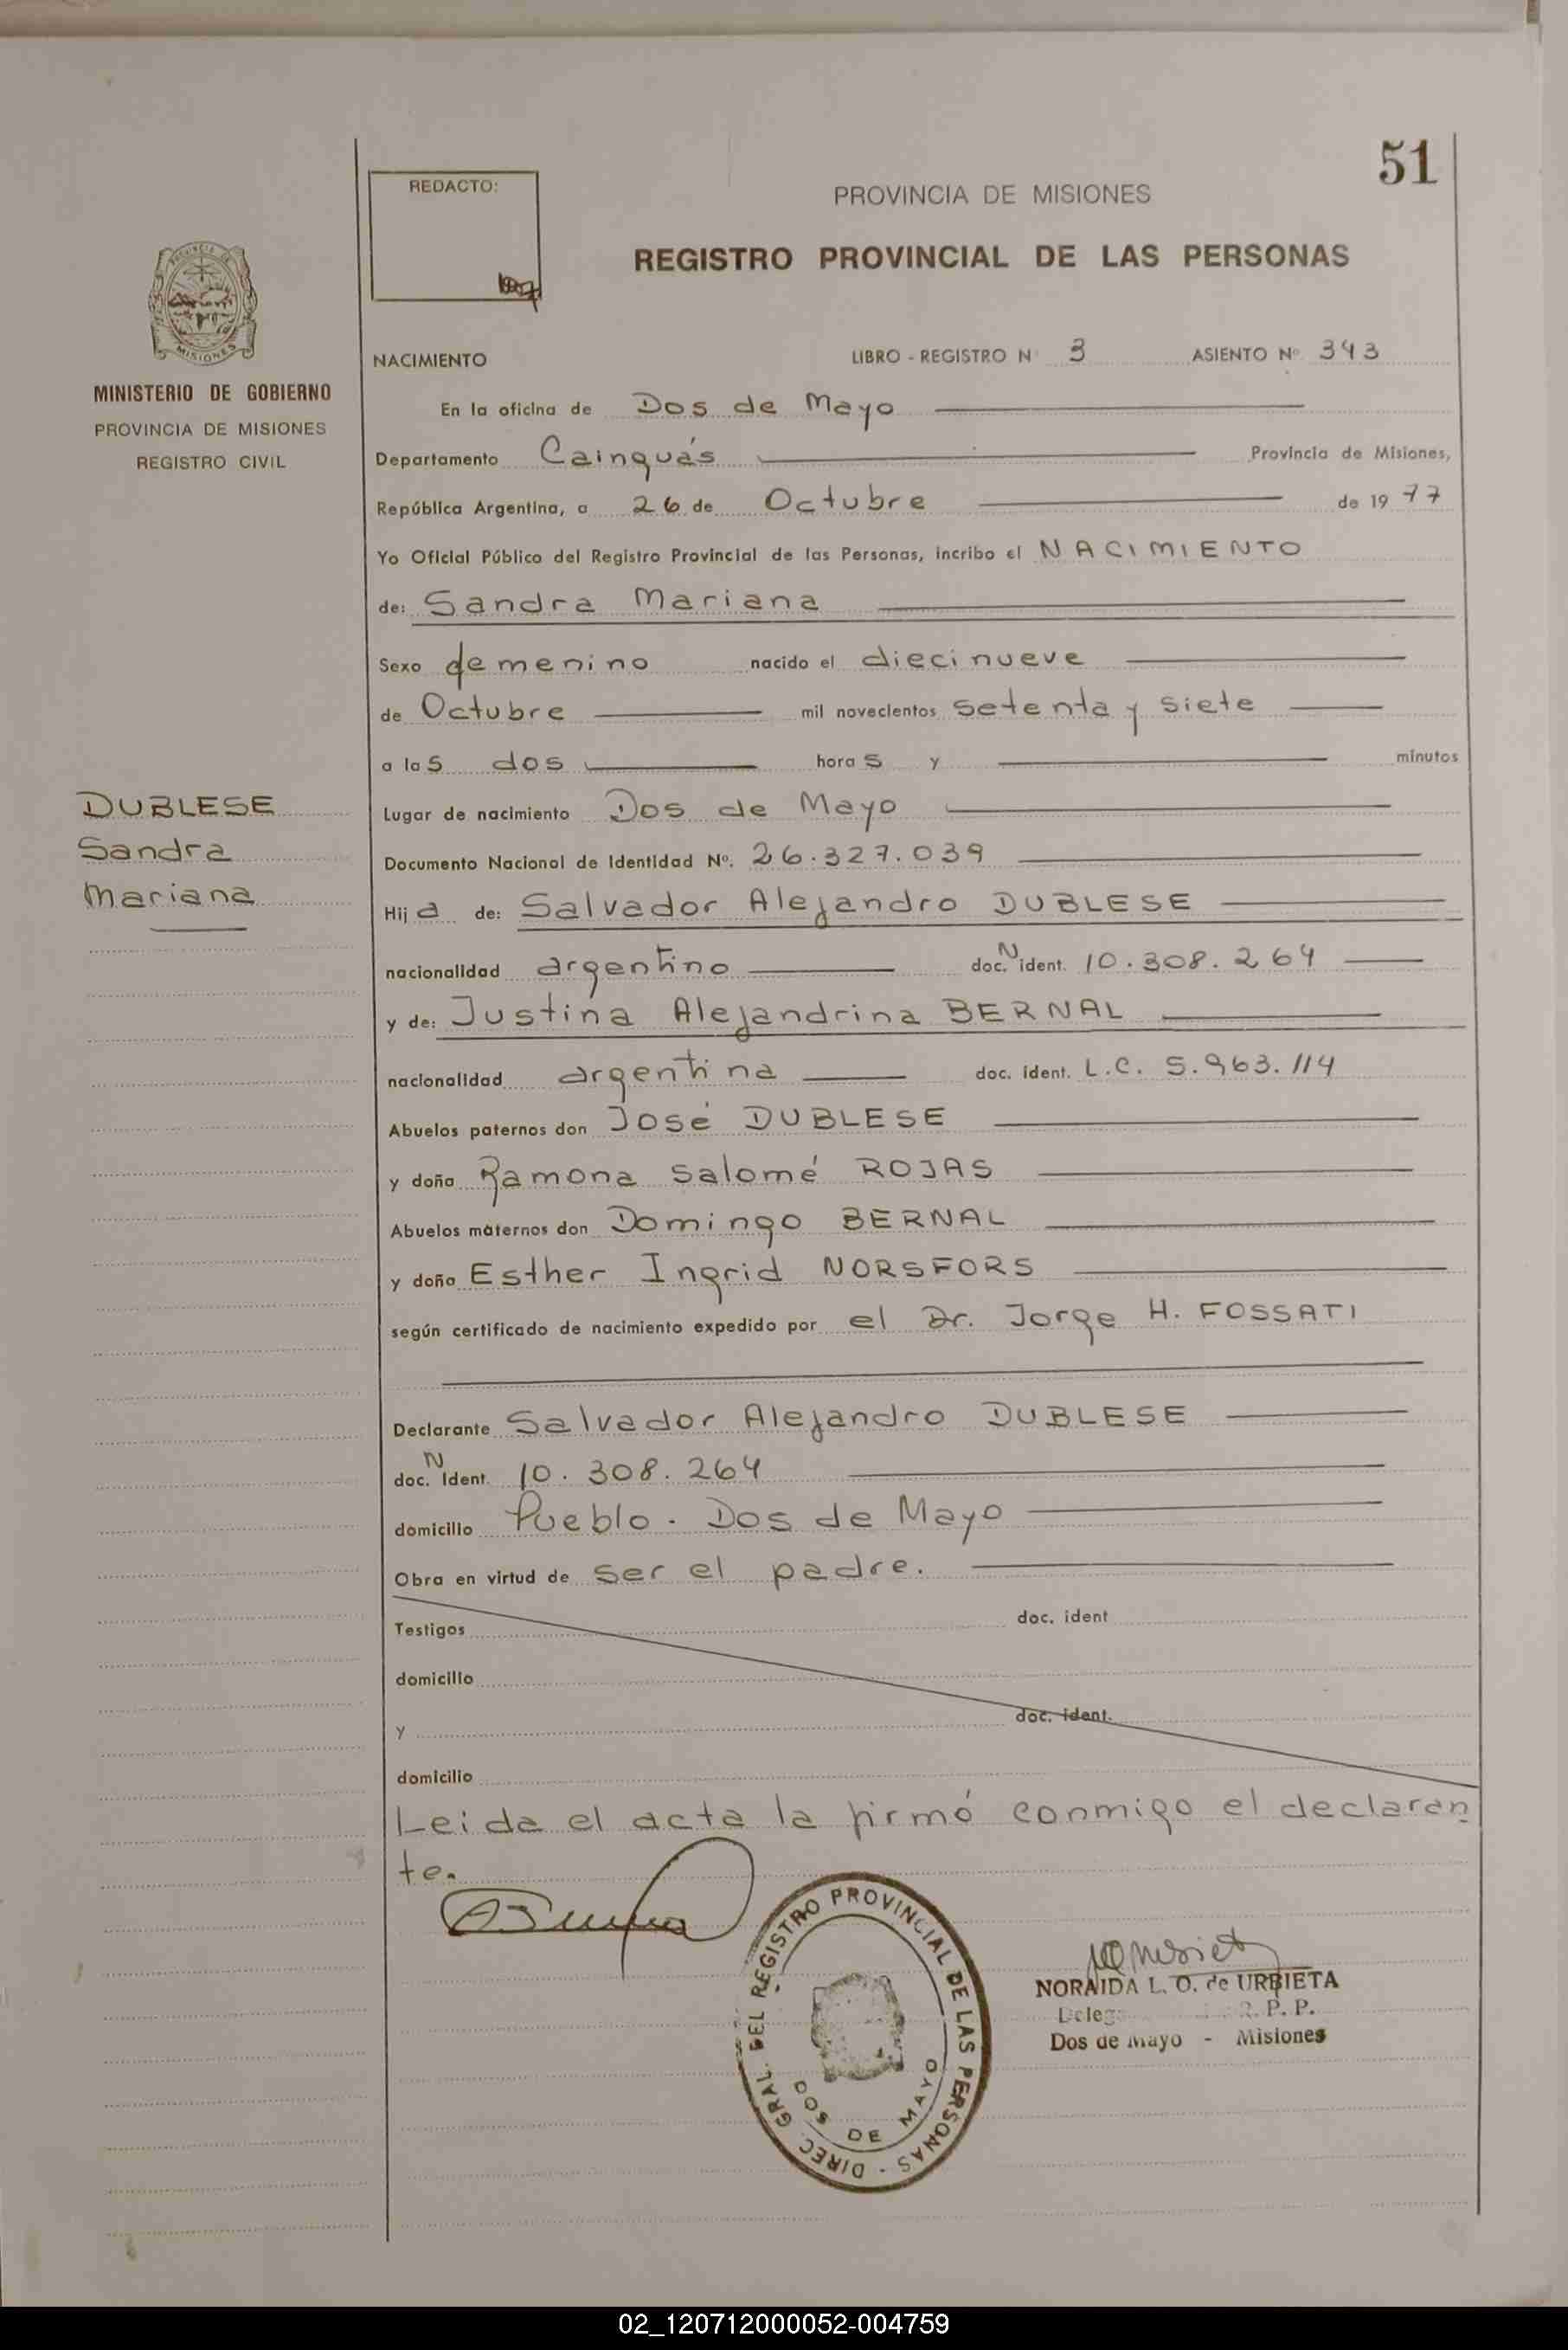 51
REDACTO:
PROVINCIA DE MISIONES
REGISTRO PROVINCIAL DE LAS PERSONAS
MISIONES
MINISTERIO DE GOBIERNO
PROVINCIA DE MISIONES
REGISTRO CIVIL
NACIMIENTO LIBRO - REGISTRO N° 3 ASIENTO N° 343
En la oficina de Dos de Mayo
Departamento Cainguás Provincia de Misiones,
República Argentina, a 26 de Octubre de 19 77
Yo Oficial Público del Registro Provincial de las Personas, incribo el NACIMIENTO
de: Sandra Mariana
Sexo femenino nacido el diecinueve
de Octubre mil novecientos setenta y siete
a las dos horas y minutos
DUBLESE
Sandra
Mariana
Lugar de nacimiento Dos de Mayo
Documento Nacional de Identidad Nº. 26.327.039
Hija de: Salvador Alejandro DUBLESE
nacionalidad argentino doc. N ident. 10.308.264
y de: Justina Alejandrina BERNAL
nacionalidad argentina doc. ident. L.C. 5.963.114
Abuelos paternos don José DUBLESE
y doña Ramona Salomé ROJAS
Abuelos maternos don Domingo BERNAL
y doña Esther Ingrid NORSFORS
según certificado de nacimiento expedido por el Dr. Jorge H. FOSSATI
Declarante Salvador Alejandro DUBLESE
doc. N Ident. 10.308.264
domicilio Pueblo - Dos de Mayo
Obra en virtud de ser el padre.
Testigos doc. ident
domicilio
y doc. ident.
domicilio
Leida el acta la firmó conmigo el declaran
te.
DIREC. GRAL. DEL REGISTRO PROVINCIAL DE LAS PERSONAS
DOS DE MAYO
NORAIDA L. O. de URBIETA
R. P. P.
Dos de Mayo - Misiones
02_120712000052-004759